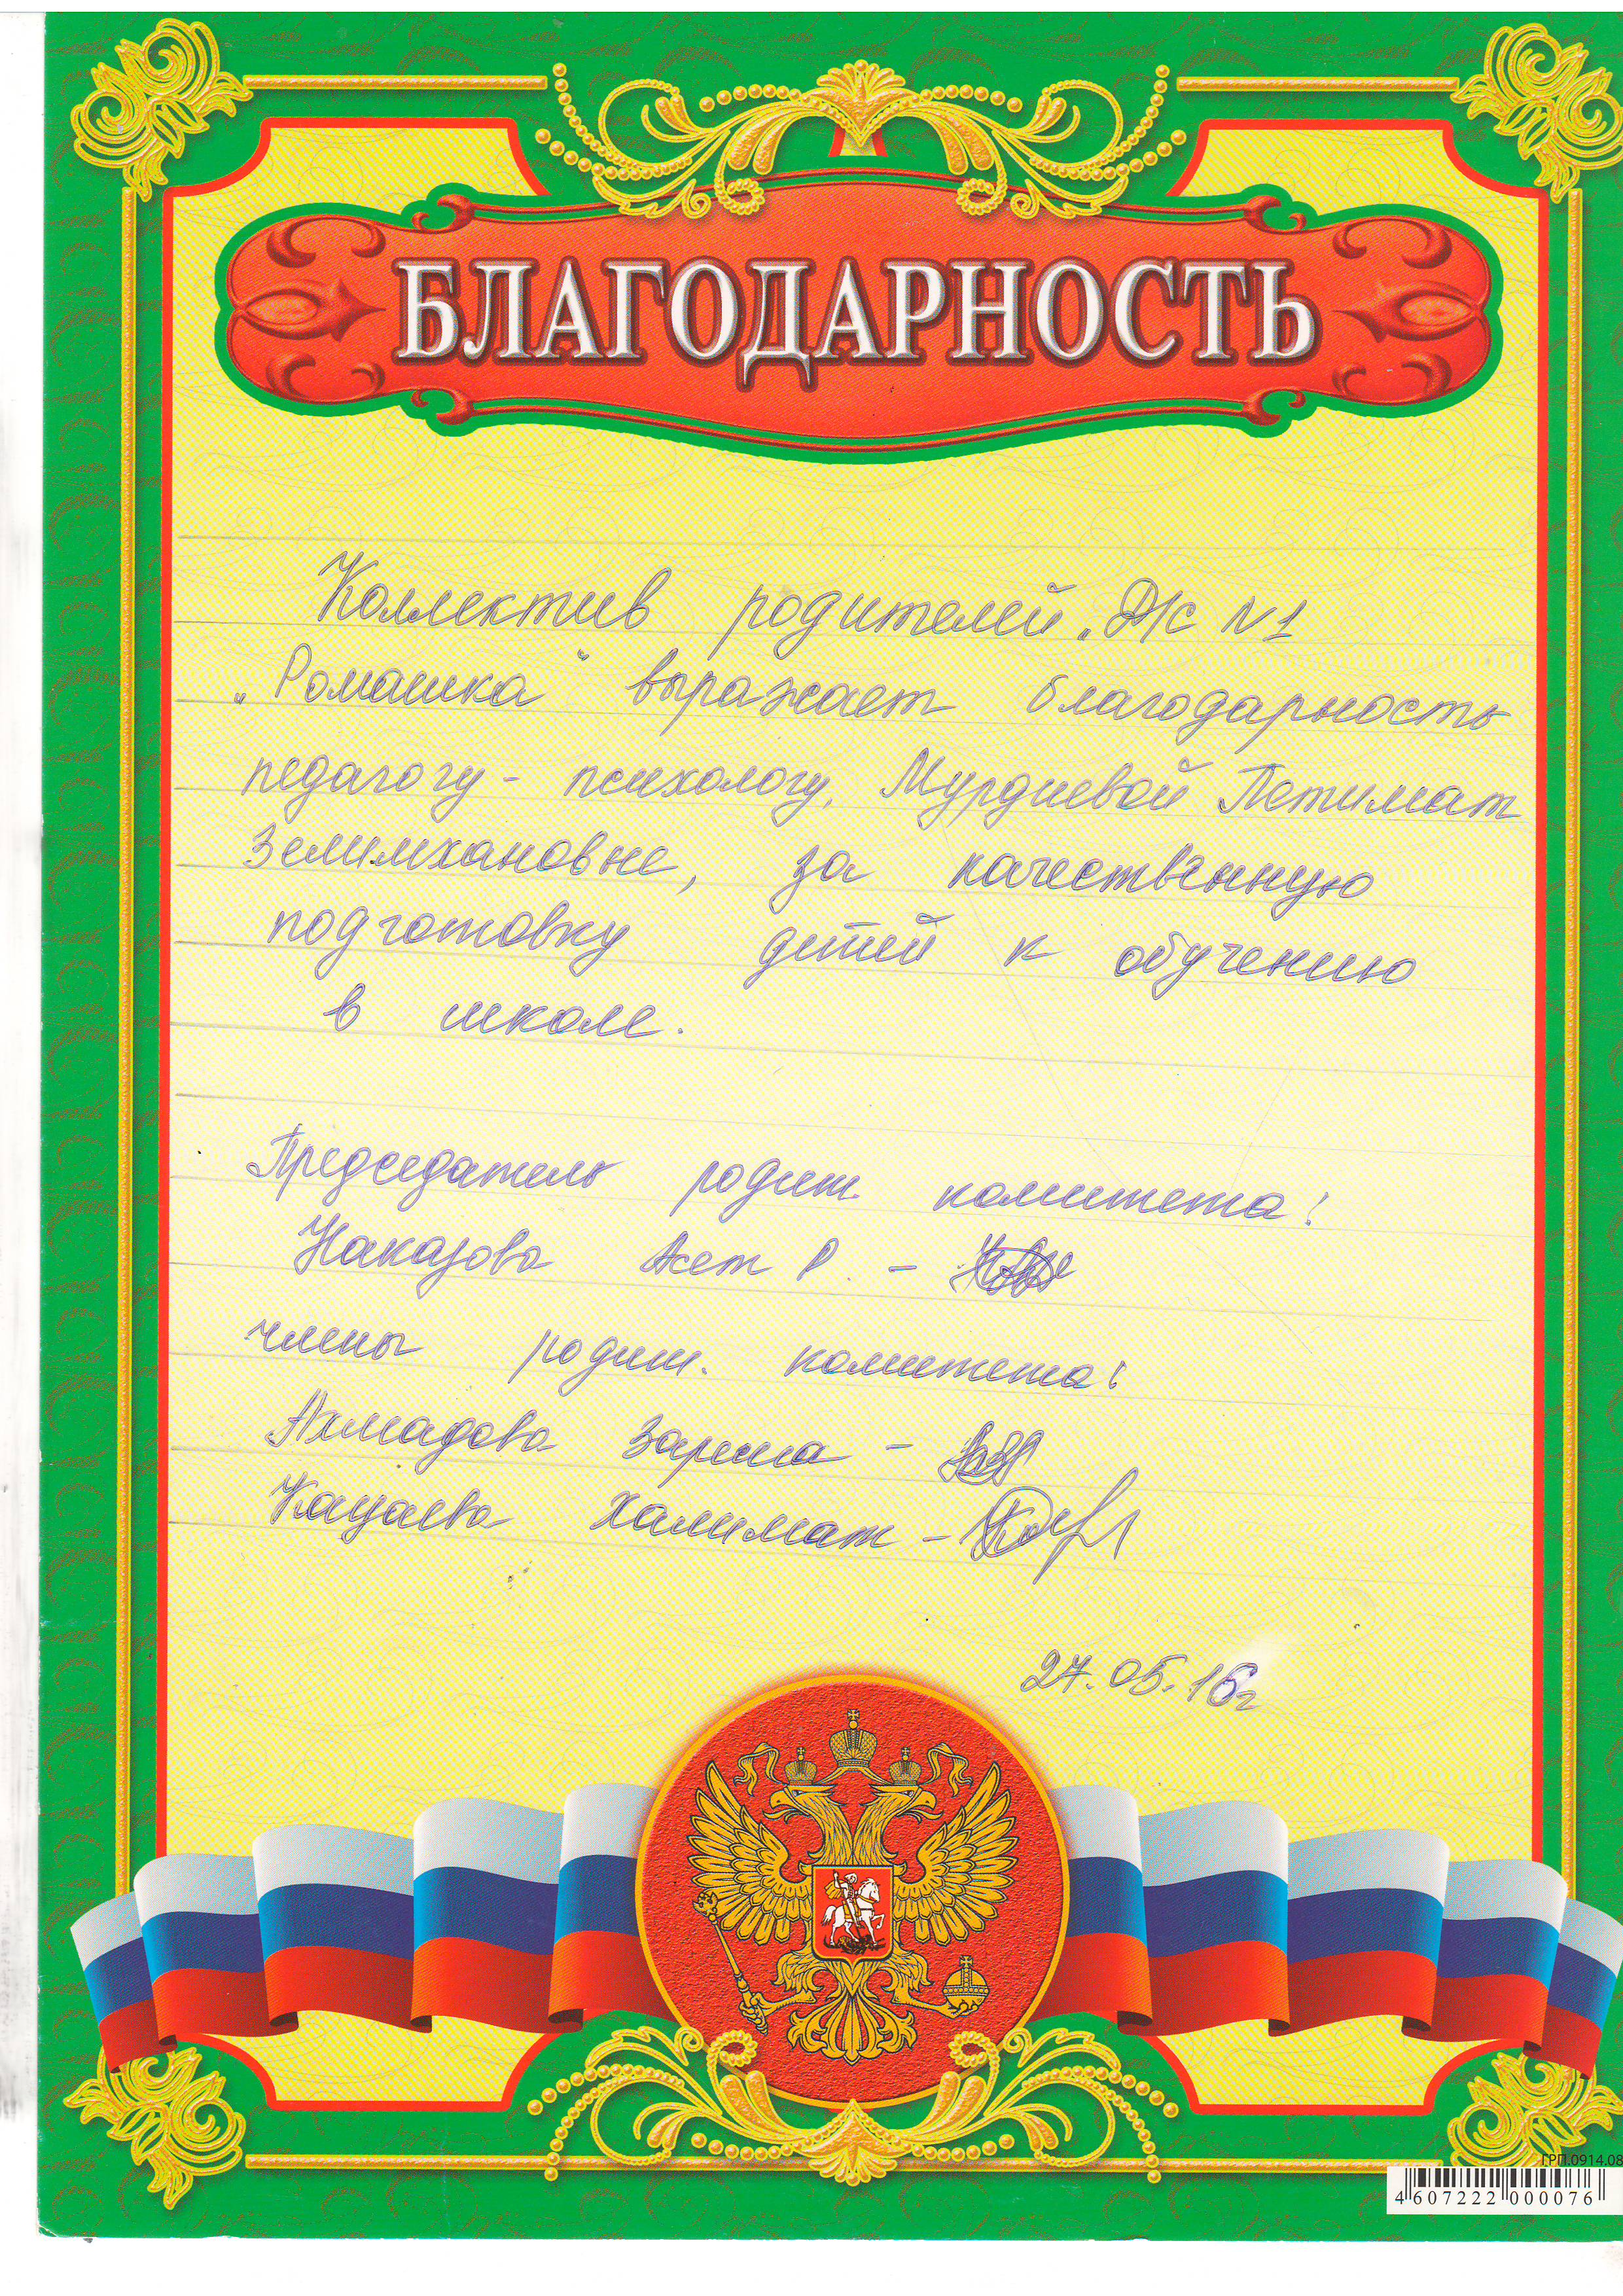 БЛАГОДАРНОСТЬ
Коллектив родителей „Д/с N1
„Ромашка“ выражает благодарность
педагогу- психологу, Мурдиевой Петимат
Зелимхановне, за качественную
подготовку детей к обучению
в школе.
Председатель родит. комитета:
Наказова Асет Р. -
члены родит. комитета:
Ахмадова Зарема -
Кацаева Халимат -
27.05.16г
ГРП.0914.08
4 607222 000076